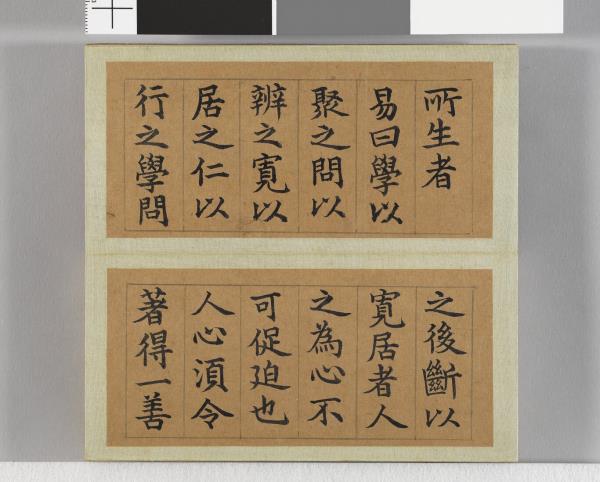 所生者
易曰學以
聚之問以
辨之寬以
居之仁以
行之學問
之後斷以
寬居者人
之為心不
可促迫也
人心須令
著得一善